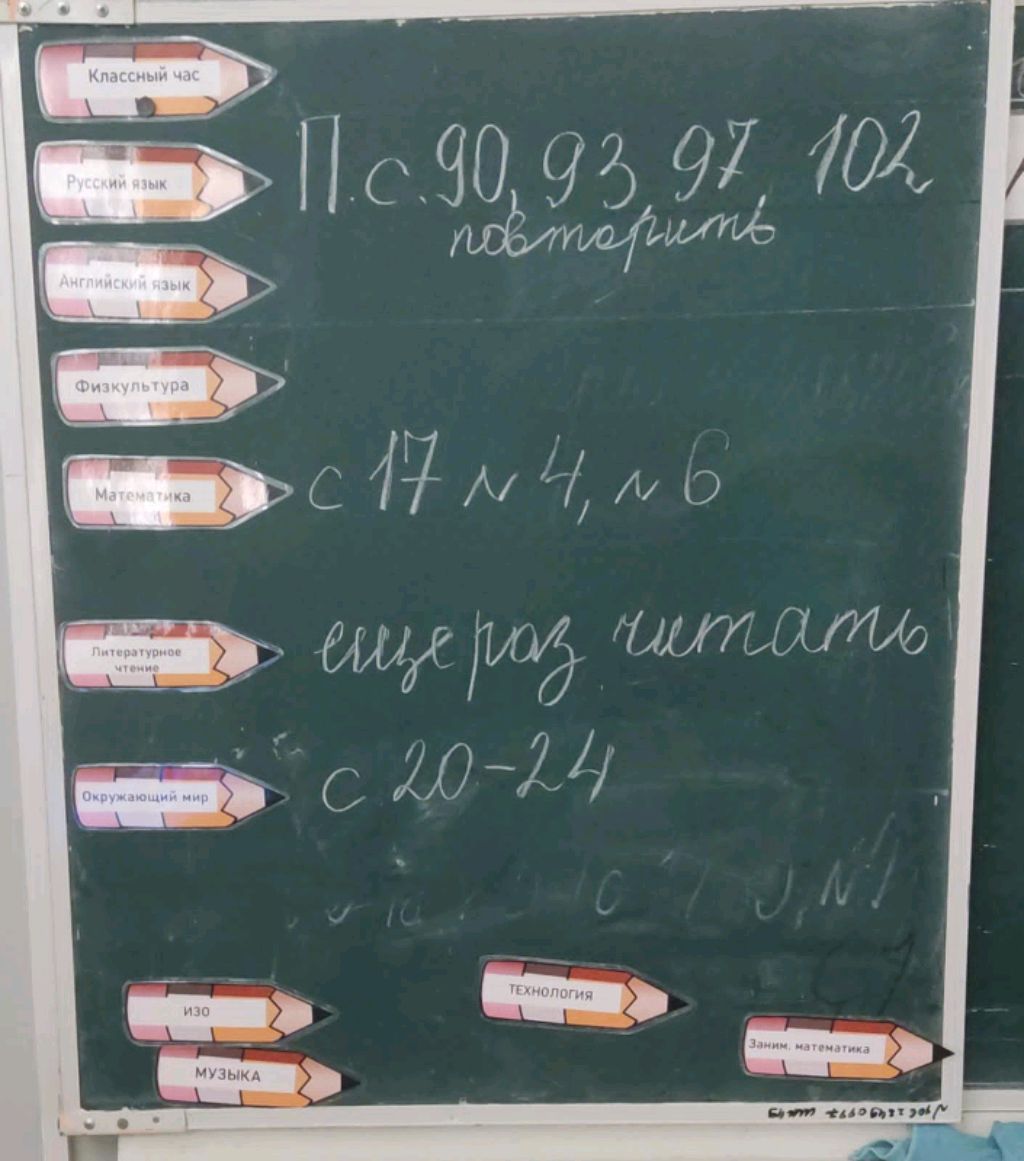 Классный час
Русский язык
П.с.90, 93, 97, 102
повторить
Английский язык
Физкультура
Математика
с 17 N 4, N 6
Литературное
чтение
еще раз читать
Окружающий мир
с 20-24
N1
ТЕХНОЛОГИЯ
ИЗО
Заним. математика
МУЗЫКА